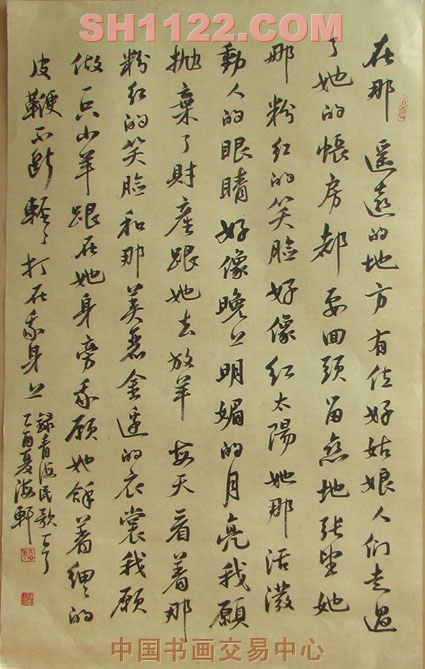 SH1122.COM
在那遥遠的地方有位好姑娘人们走過
了她的帳房都要回頭留戀地張望她
那粉红的笑脸好像红太陽她那活潑
動人的眼睛好像晚上明媚的月亮我願
抛棄了財產跟她去放羊每天看着那
粉红的笑脸和那美丽金邊的衣裳我願
做一只小羊跟在她身旁我願她着细々的
皮鞭不断轻々打在我身上
録青海民歌
乙酉夏海軒
中国书画交易中心